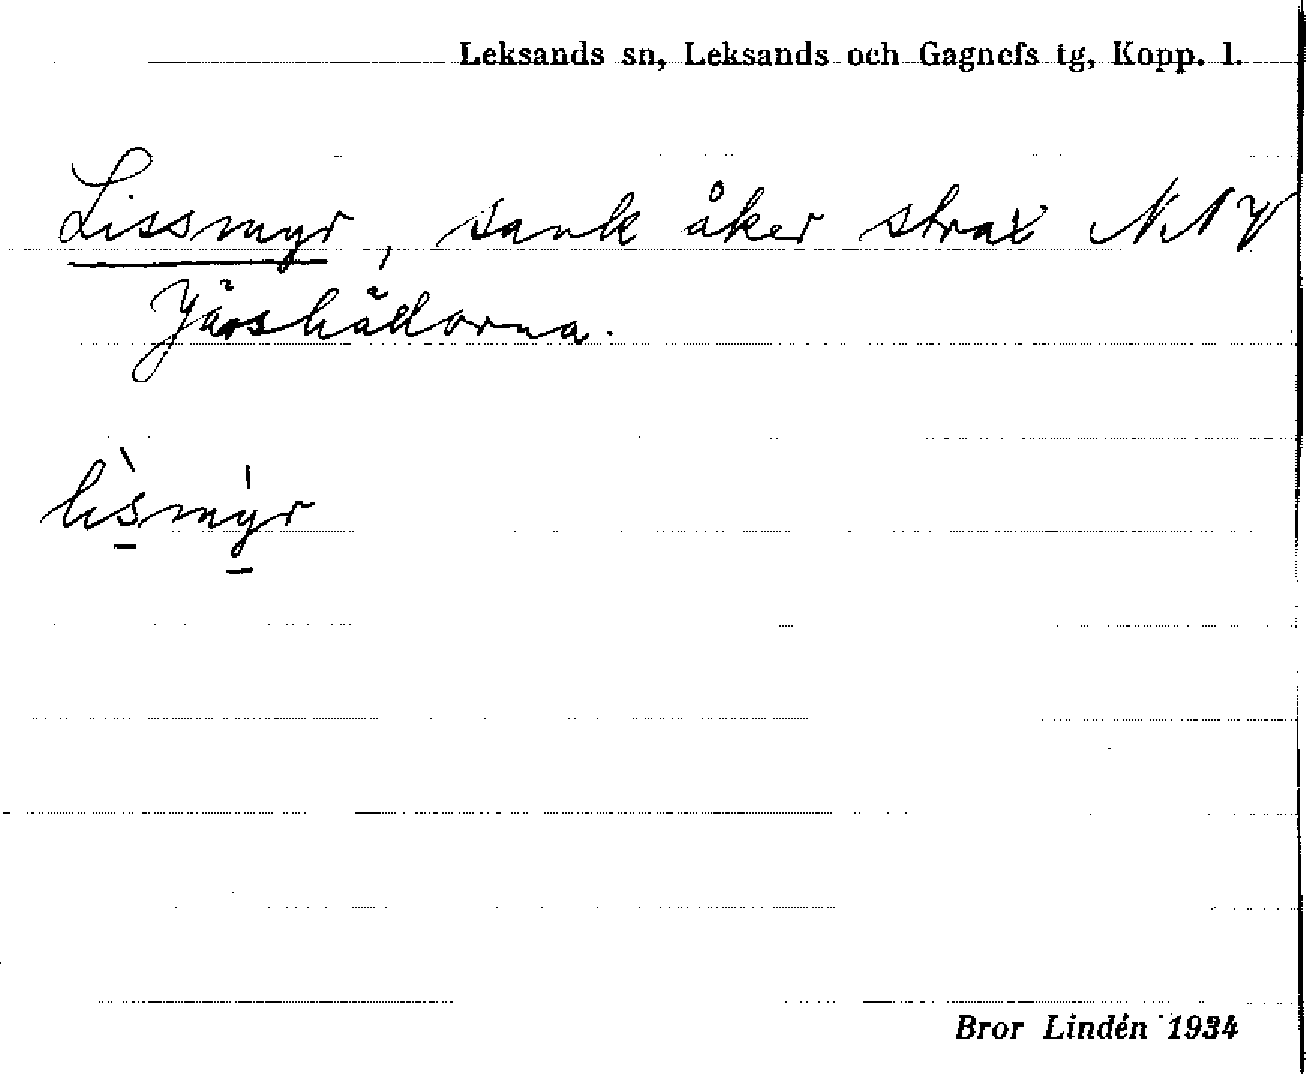 Leksands sn, Leksands och Gagnefs tg, Kopp. l.
Lissmyr, sank åker strax NNV
lìsmy̍r
Bror Lindén 1934